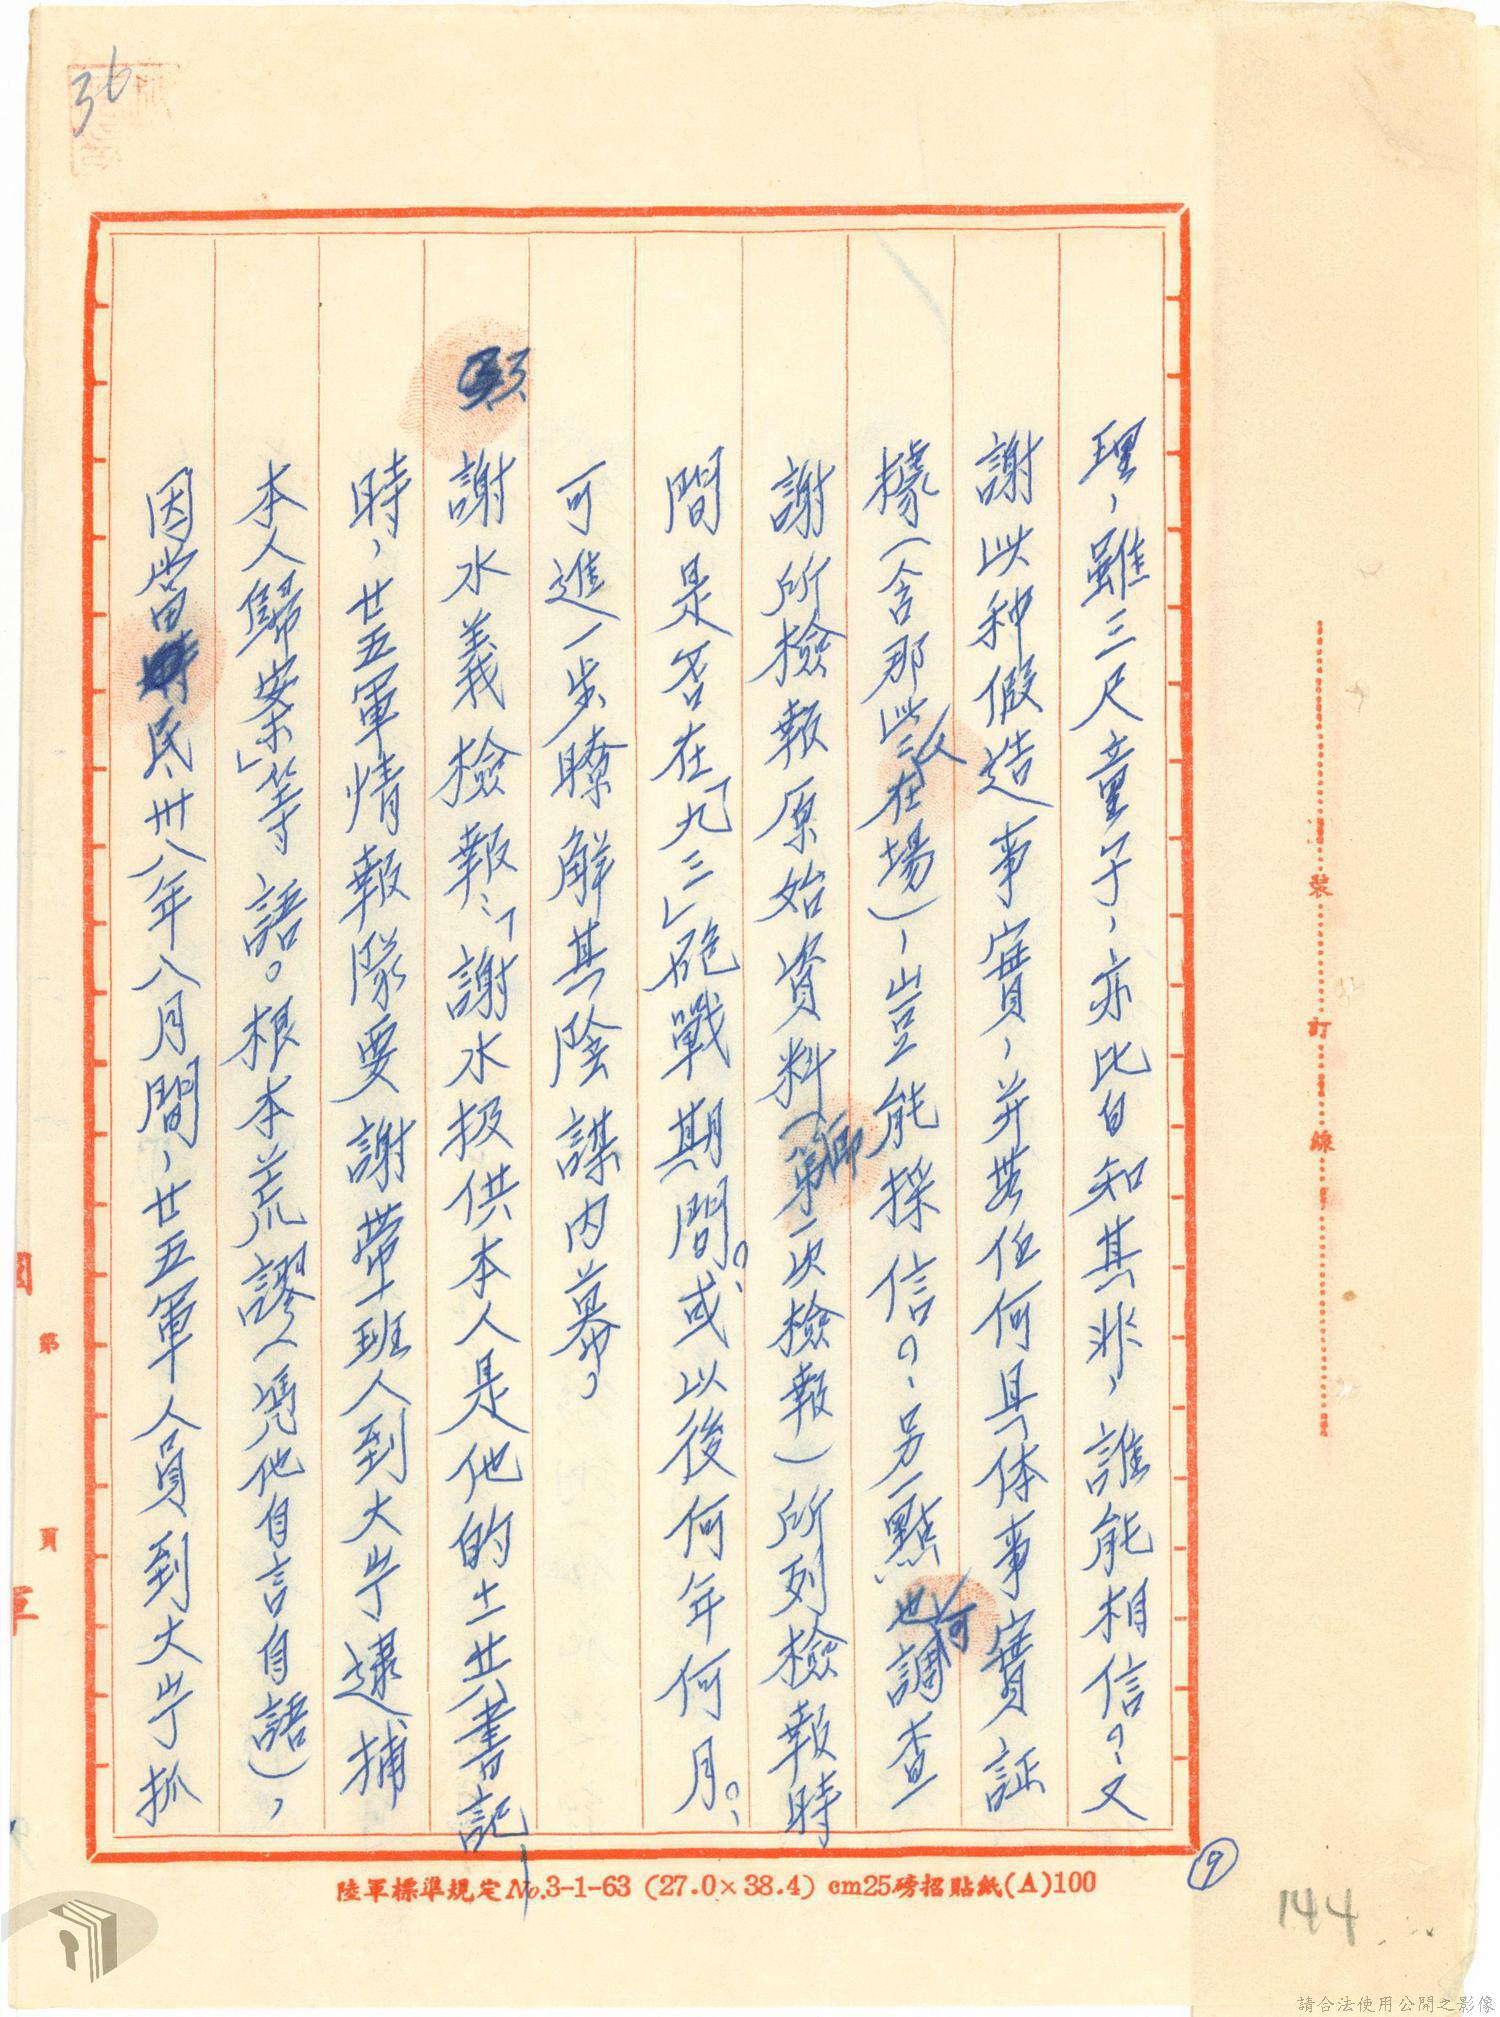 36
理，雖三尺童子，亦皆自知其非，誰能相信？又
謝此种假造事實，并無任何具体事實証
據（含那些人在場），豈能採信？另一點也可調查
謝所檢報原始資料（第一次檢報）所列檢報時
間是否在「九三」砲戰期間？或以後何年何月？，
可進一步瞭解其陰謀內幕，
謝水義檢報：「謝水扱供本人是他的土共書記，
時，廿五軍情報隊要謝帶一班人到大岞逮捕
本人歸案」等語。根本荒謬（凭他自言自語），
因當民卅八年八月間，廿五軍人員到大岞抓
裝訂線
第 頁
陸軍標準規定No.3-1-63 (27.0×38.4) cm25磅招貼紙(A)100
9
144
請合法使用公開之影像